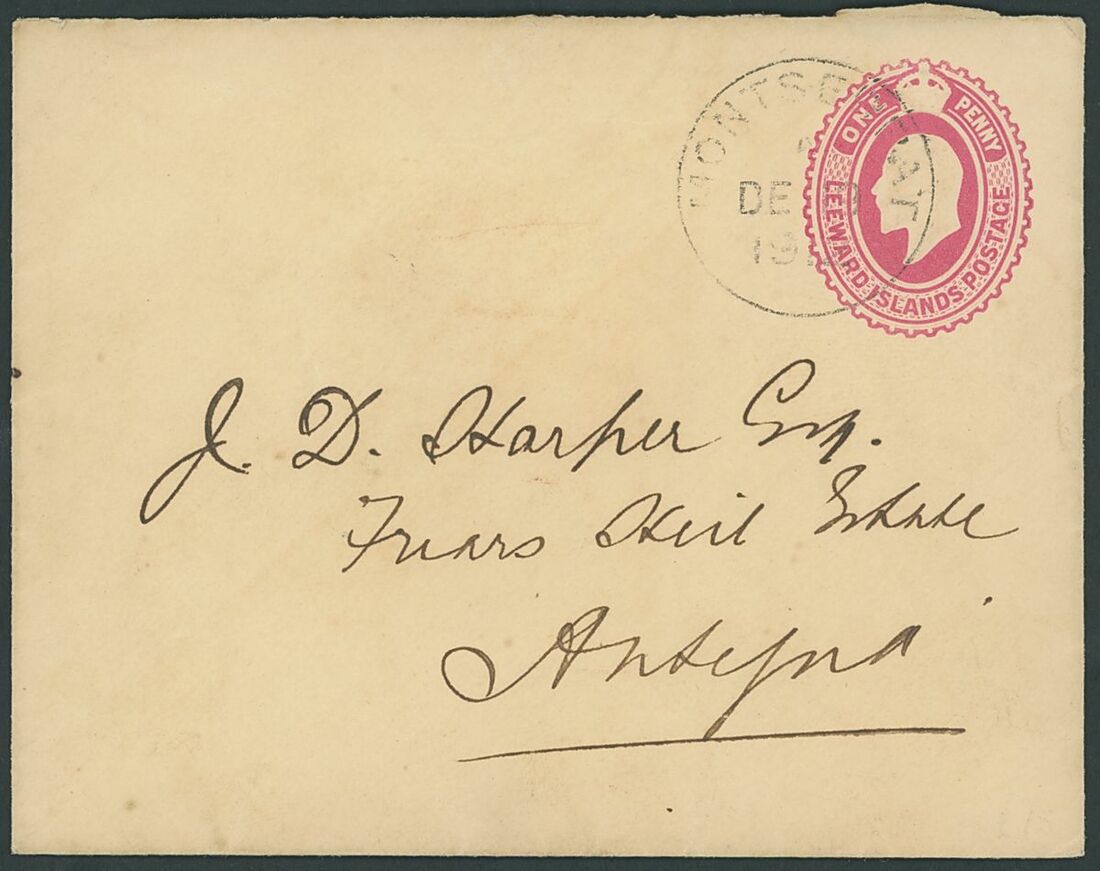 ONE PENNY
LEEWARD ISLANDS POSTAGE
MONTSERRAT
DE
J. D. Harper Esq.
Friars Hill Estate
Antigua